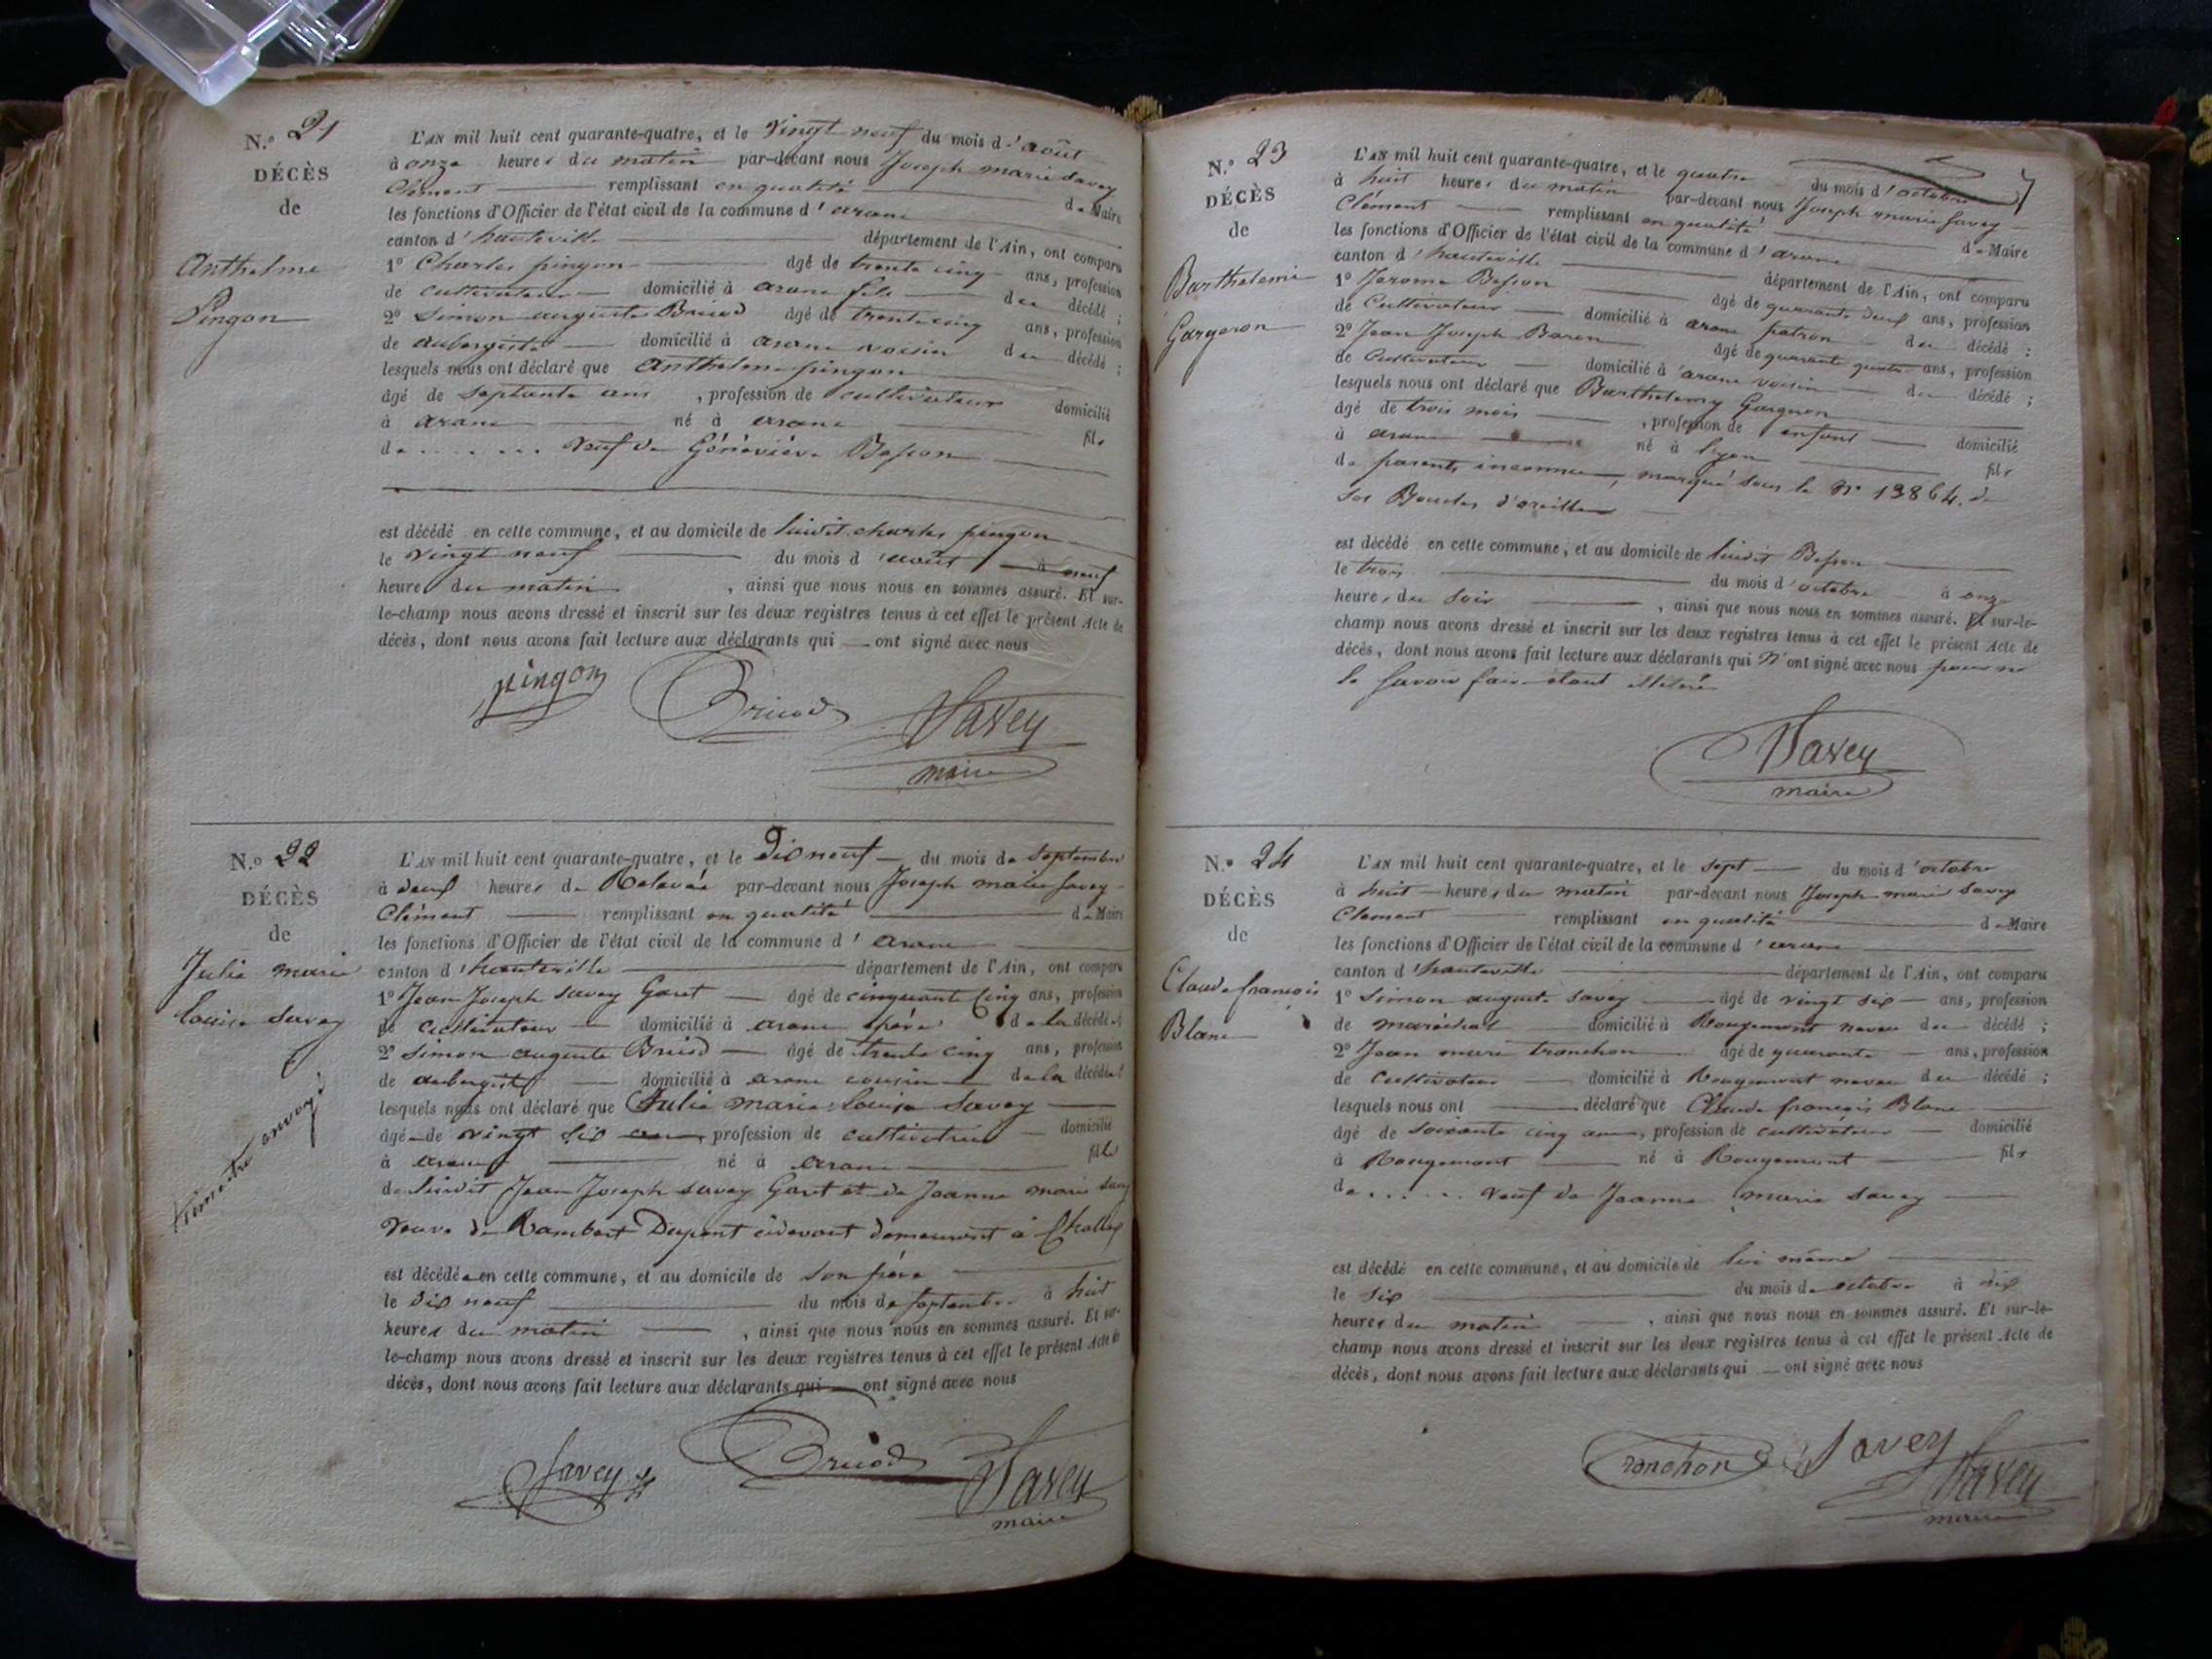 N.° 21
DÉCÈS
de
Anthelme
Pingon
L'AN mil huit cent quarante-quatre, et le vingt neuf du mois d'août
à onze heures du matin par-devant nous Joseph marie Savey
Clément remplissant en qualité de Maire
les fonctions d'Officier de l'état civil de la commune d'arane
canton d'hauteville département de l'Ain, ont comparu
1° Charles pingon âgé de trente cinq ans, profession
de cultivateur domicilié à arane fils du décédé ;
2° Simon auguste Bruiod âgé de trente cinq ans, profession
de aubergiste domicilié à arane voisin du décédé ;
lesquels nous ont déclaré que Anthelme pingon
âgé de septante ans, profession de cultivateur domicilié
à arane né à arane fils
de ....... veuf de Généviève Besson
est décédé en cette commune, et au domicile de ludit charles pingon
le vingt neuf du mois d'août à neuf
heure du matin, ainsi que nous nous en sommes assuré. Et sur-
le-champ nous avons dressé et inscrit sur les deux registres tenus à cet effet le présent Acte de
décès, dont nous avons fait lecture aux déclarants qui ont signé avec nous
pingon Bruiod Savey
maire
N.° 22
DÉCÈS
de
Julie marie
Louise Savey
envoyé
L'AN mil huit cent quarante-quatre, et le Dix neuf du mois de septembre
à deux heures de Relevée par-devant nous Joseph marie Savey
Clément remplissant en qualité de Maire
les fonctions d'Officier de l'état civil de la commune d'arane
canton d'hauteville département de l'Ain, ont comparu
1° Jean Joseph Savey Garet âgé de cinquante cinq ans, profession
de cultivateur domicilié à arane père de la décédée ;
2° Simon auguste Bruiod âgé de trente cinq ans, profession
de aubergiste domicilié à arane cousin de la décédée ;
lesquels nous ont déclaré que Julie marie Louise Savey
âgée de vingt six ans, profession de cultivatrice domicilié
à arane né à arane fille
de ludit Jean Joseph Savey Garet et de Jeanne marie Savey
veuve de Rambert Dupont cidevant demeurant à
est décédée en cette commune, et au domicile de son père
le Dix neuf du mois de septembre à huit
heures du matin, ainsi que nous nous en sommes assuré. Et sur-
le-champ nous avons dressé et inscrit sur les deux registres tenus à cet effet le présent Acte de
décès, dont nous avons fait lecture aux déclarants qui ont signé avec nous
Savey Bruiod Savey
maire
N.° 23
DÉCÈS
de
Barthelemi
Gargeron
L'AN mil huit cent quarante-quatre, et le quatre du mois d'octobre
à huit heures du matin par-devant nous Joseph marie Savey
Clément remplissant en qualité de Maire
les fonctions d'Officier de l'état civil de la commune d'arane
canton d'hauteville département de l'Ain, ont comparu
1° Jerome Besson âgé de quarante deux ans, profession
de Cultivateur domicilié à arane patron du décédé ;
2° Jean Joseph Baron âgé de quarante quatre ans, profession
de Cultivateur domicilié à arane voisin du décédé ;
lesquels nous ont déclaré que Barthelemy Gargeron
âgé de trois mois, profession de enfant domicilié
à arane né à lyon fils
de parents inconnus, marqué sous le N° 13864. de
ses Boucles d'oreilles
est décédé en cette commune, et au domicile de ludit Besson
le trois du mois d'octobre à onze
heures du soir, ainsi que nous nous en sommes assuré. Et sur-le-
champ nous avons dressé et inscrit sur les deux registres tenus à cet effet le présent Acte de
décès, dont nous avons fait lecture aux déclarants qui N'ont signé avec nous pour ne
le savoir faire étant illitéré
Savey
maire
N.° 24
DÉCÈS
de
Claude françois
Blanc
L'AN mil huit cent quarante-quatre, et le sept du mois d'octobre
à huit heures du matin par-devant nous Joseph marie Savey
Clément remplissant en qualité de Maire
les fonctions d'Officier de l'état civil de la commune d'arane
canton d'hauteville département de l'Ain, ont comparu
1° Simon auguste Savey âgé de vingt six ans, profession
de maréchal domicilié à Rougemont neveu du décédé ;
2° Jean marie tronchon âgé de quarante ans, profession
de Cultivateur domicilié à Rougemont neveu du décédé ;
lesquels nous ont déclaré que Claude françois Blanc
âgé de soixante cinq ans, profession de cultivateur domicilié
à Rougemont né à Rougemont fils
de ...... veuf de Jeanne marie Savey
est décédé en cette commune, et au domicile de lui même
le six du mois de octobre à dix
heures du matin, ainsi que nous nous en sommes assuré. Et sur-le-
champ nous avons dressé et inscrit sur les deux registres tenus à cet effet le présent Acte de
décès, dont nous avons fait lecture aux déclarants qui ont signé avec nous
Tronchon Savey Savey
maire